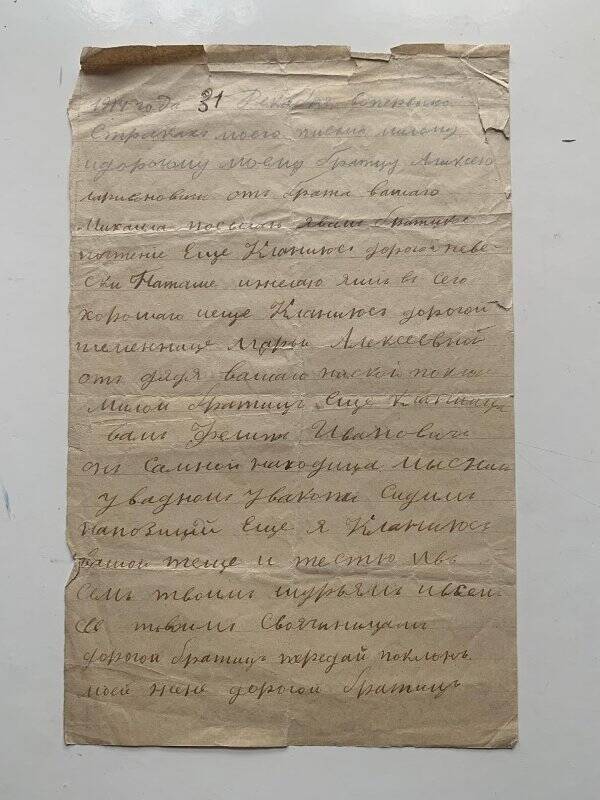 1914 года 31 Декабря вопервыхъ
Строкахъ моего писма милому
идорогому моему братцу Алексею
отъ брата вашаго
Михаила посылаю явамъ братское
почтеніе Еще Кланиюсъ дорогой неве-
ски Наташе ижелаю я отъ всего
хорошаго иеще Кланиюсъ дорогой
племеннице Марьи Алексеевной
отъ дядя вашаго ниской поклонъ
Милой братицъ еще Кланиица
вамъ Филипъ Ивановичъ
онъ Самной находица мысним
у вадномъ Увакопи Сидимъ
напозицій Еще я Кланиюсъ
вашой теще и тестю ивъ
семъ твоимъ шурьямъ ивсем
твоимъ Своячиницамъ
дорогой братицъ передай поклонъ
моей жене дорогой братицъ